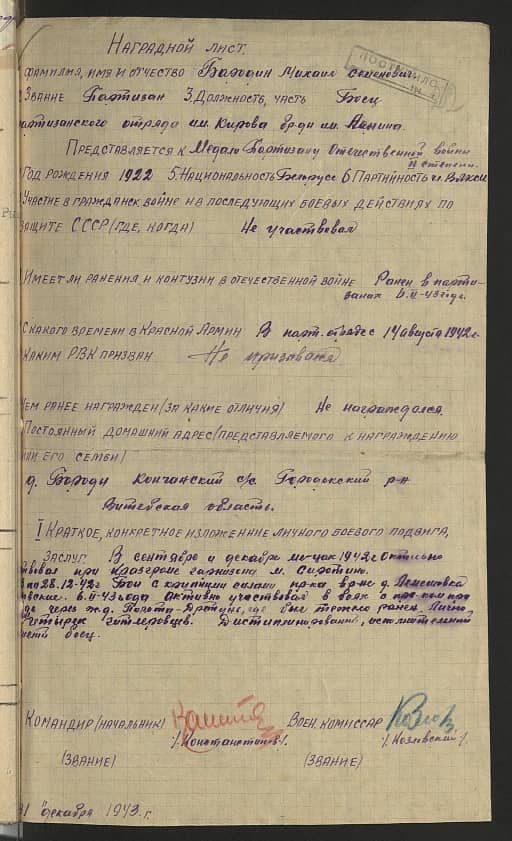 НАГРАДНОЙ ЛИСТ.
ФАМИЛИЯ, ИМЯ И ОТЧЕСТВО Бародин Михаил Семенович
ЗВАНИЕ Партизан 3. ДОЛЖНОСТЬ, ЧАСТЬ Боец
партизанского отряда им. Кирова бр-ди им. Ленина.
ПРЕДСТАВЛЯЕТСЯ К Медали Партизану Отечественной войны
II степени.
ГОД РОЖДЕНИЯ 1922 5. НАЦИОНАЛЬНОСТЬ Беларус 6 ПАРТИЙНОСТЬ чл. ВЛКСМ
УЧАСТИЕ В ГРАЖДАНСК. ВОЙНЕ И В ПОСЛЕДУЮЩИХ БОЕВЫХ ДЕЙСТВИЯХ ПО
ЗАЩИТЕ СССР (ГДЕ, КОГДА) Не участвовал
ИМЕЕТ ЛИ РАНЕНИЯ И КОНТУЗИИ В ОТЕЧЕСТВЕННОЙ ВОЙНЕ Ранен в парти-
занах 6.II-43 года.
С КАКОГО ВРЕМЕНИ В КРАСНОЙ АРМИИ В парт. отряде с 14 августа 1942 г.
КАКИМ РВК ПРИЗВАН Не призывался
ЧЕМ РАНЕЕ НАГРАЖДЕН (ЗА КАКИЕ ОТЛИЧИЯ) Не награждался.
ПОСТОЯННЫЙ ДОМАШНИЙ АДРЕС (ПРЕДСТАВЛЯЕМОГО К НАГРАЖДЕНИЮ
ИЛИ ЕГО СЕМЬИ)
д. Бароди с/с Городокский р-н
Витебская область.
I КРАТКОЕ, КОНКРЕТНОЕ ИЗЛОЖЕНИЕ ЛИЧНОГО БОЕВОГО ПОДВИГА,
ЗАСЛУГ В сентябре и декабре м-цах 1942 г. Активно
при разгроме гарнизона м. Сиротино.
28.12-42 г. Бои с крупными силами пр-ка в р-не д.
6.II-43 года Активно участвовал в боях с пр-ком при
через ж.д. Полота-Дретунь, где был тяжело ранен. Лично
четырех гитлеровцев. Дисциплинированный, исполнительный
боец.
КОМАНДИР (НАЧАЛЬНИК) ВОЕН. КОМИССАР
/Константинов/. /Козловский/
(ЗВАНИЕ) (ЗВАНИЕ)
декабря 1943 г.